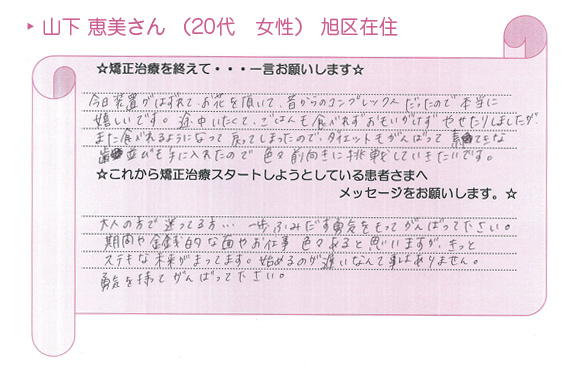 ▸ 山下 恵美さん （20代　女性） 旭区在住
☆矯正治療を終えて・・・一言お願いします☆
今日装置がはずれて、お花を頂いて、昔からのコンプレックスだったので本当に
嬉しいです。途中いたくて、ごはんも食べれずおもいがけずやせたりしましたが
また食べれるようになって戻ってしまったので、ダイエットもがんばって 素てきな
歯並びも手に入れたので 色々前向きに挑戦していきたいです。
☆これから矯正治療スタートしようとしている患者さまへ
メッセージをお願いします。☆
大人の方で迷ってる方… 一歩ふみだす勇気をもってがんばって下さい。
期間や金銭的な面やお仕事 色々あると思いますが、きっと
ステキな未来がまってます。始めるのが遅いなんて事はありません。
勇気を持って がんばって下さい。